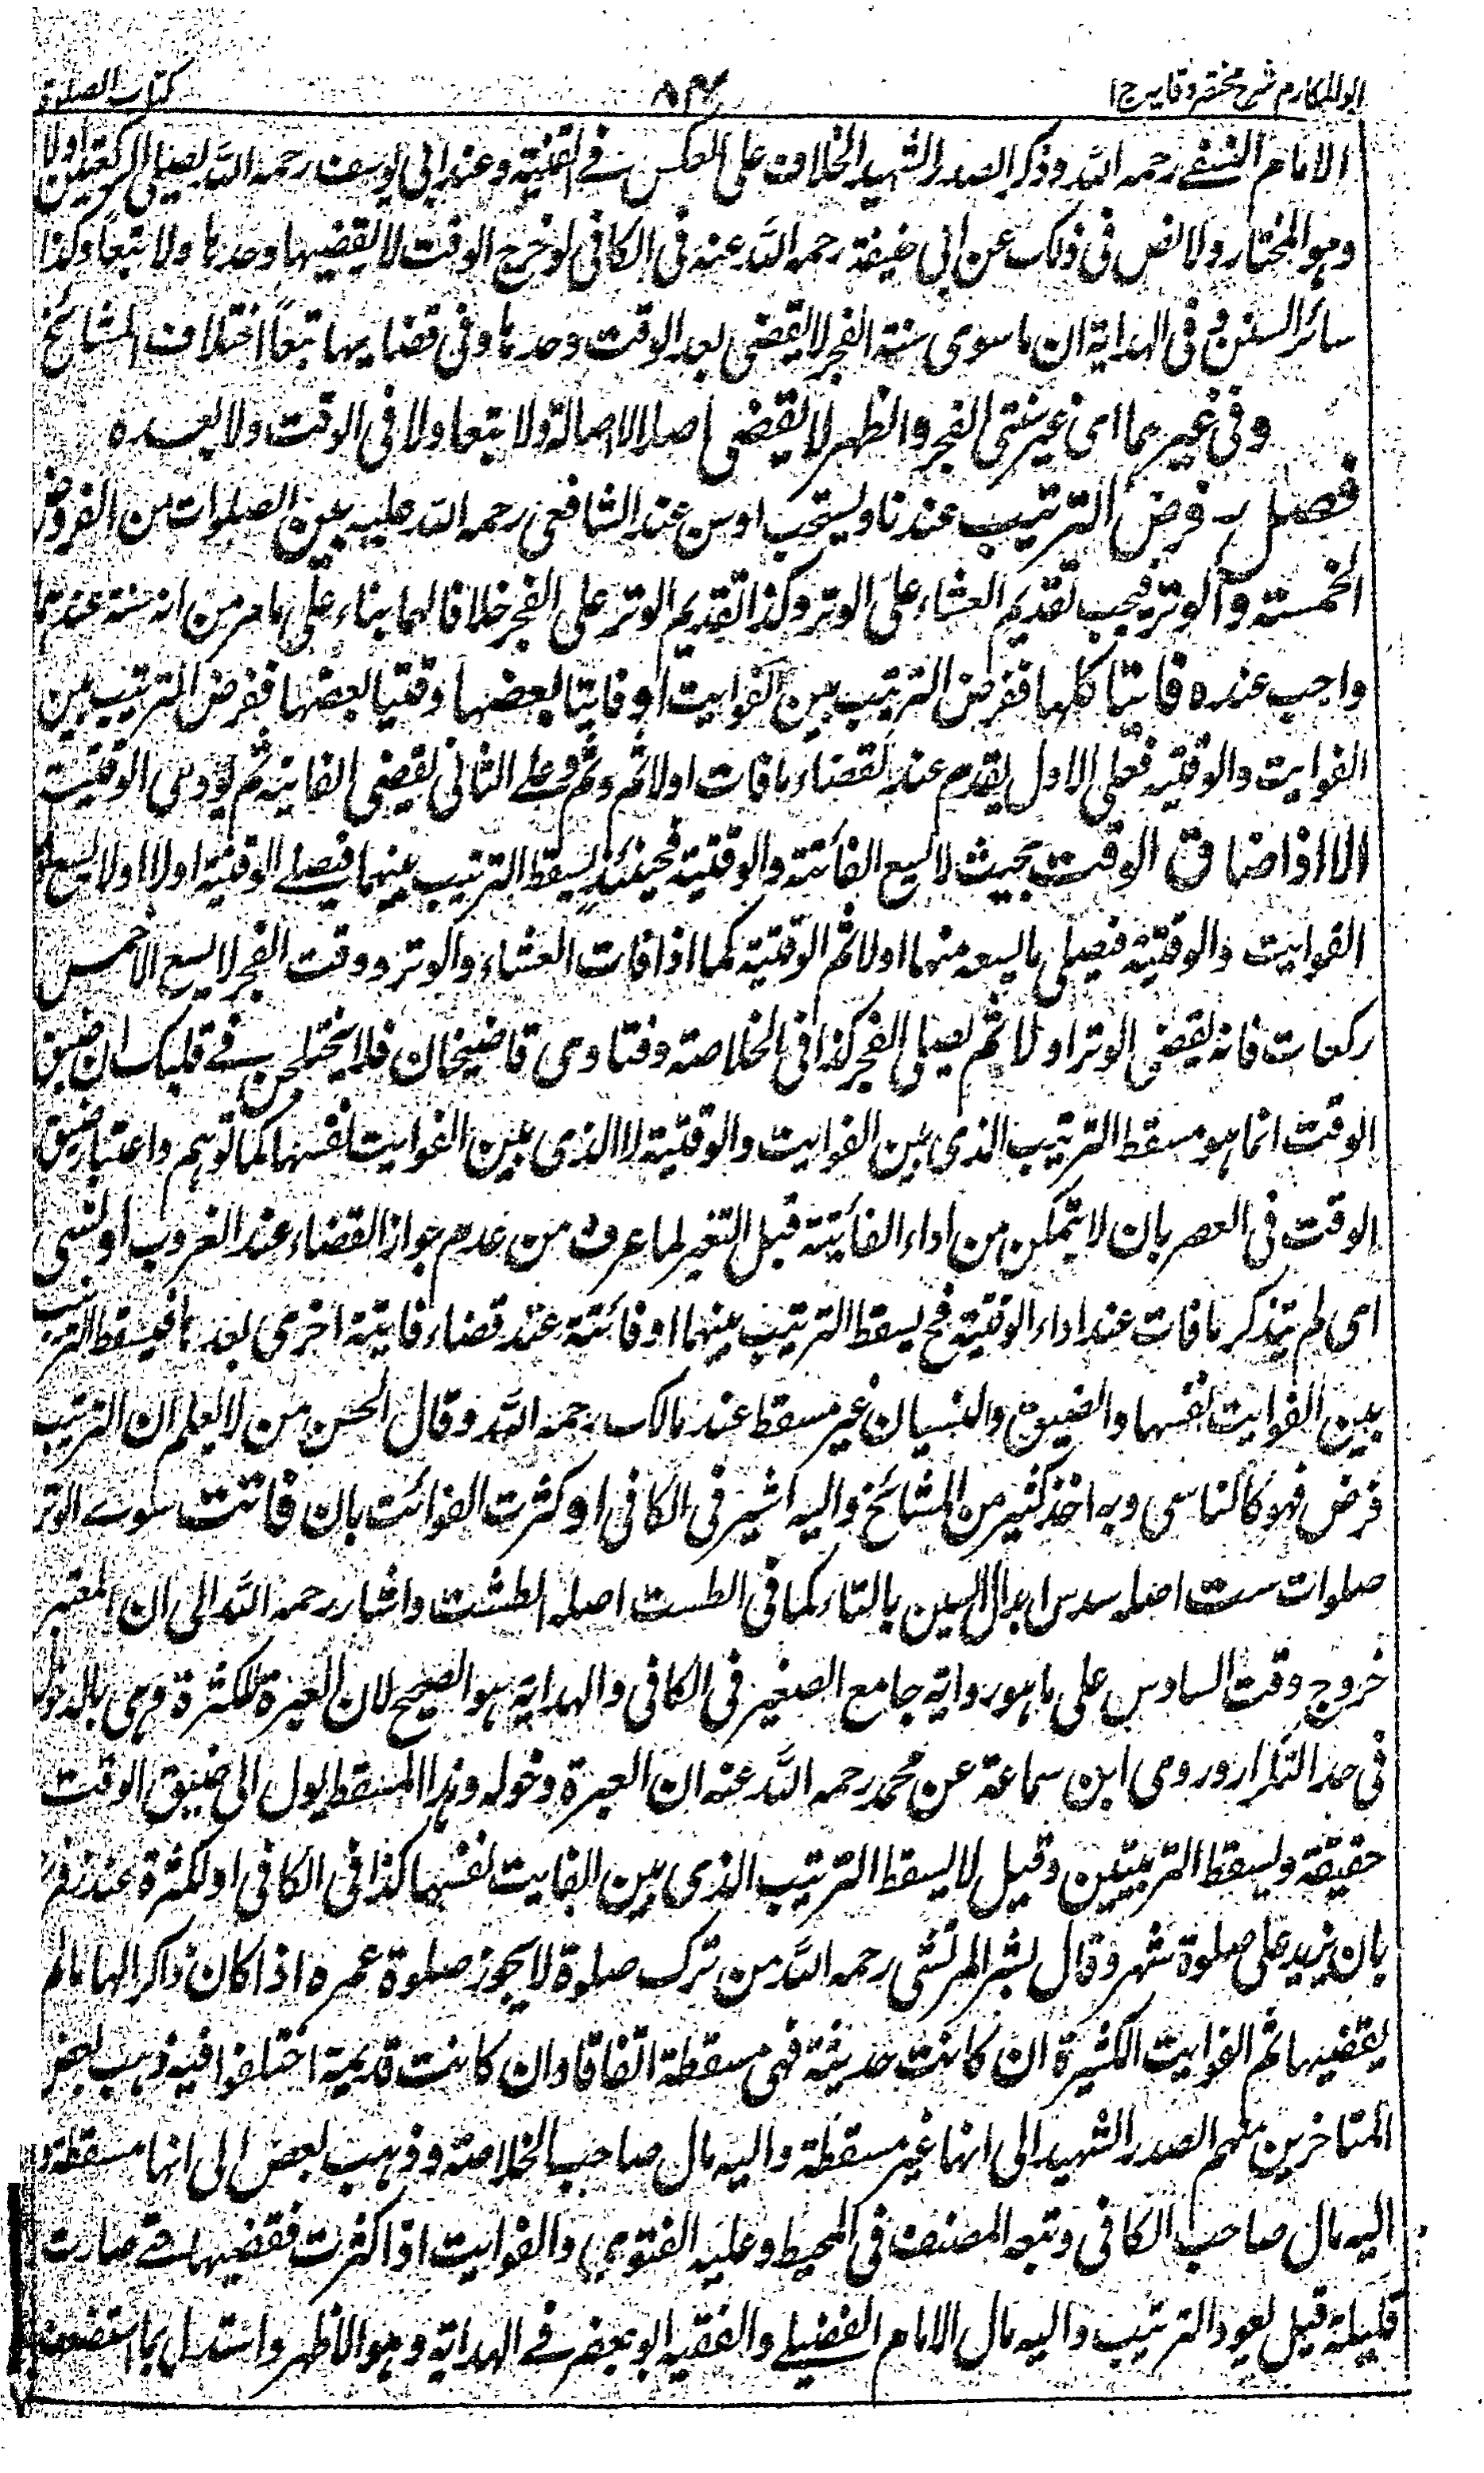 ابوالمکارم شرح مختصر وقایہ ج۱ ۸۴ کتاب الصلوۃ
الامام النسفے رحمہ اللہ وذکر الصدر الشہید الخلاف علی العکس فے القنیۃ وعند ابی یوسف رحمہ اللہ یصلی الرکعتین اولا
وہو المختار ولا نص فی ذلک عن ابی حنیفۃ رحمہ اللہ عنہ فی الکافی لو خرج الوقت لا یقضیہا وحدہا ولا تبعا وکذا
سائر السنن و فی الہدایۃ ان ما سوی سنۃ الفجر لا یقضی بعد الوقت وحدہا وفی قضایہا تبعاً اختلاف المشائخ
وفی غیرہما ای غیر سنتی الفجر والظہر لا یقضی اصلا لا اصالۃ ولا تبعا ولا فی الوقت ولا بعدہ
فصل فرض الترتیب عندنا ویستحب او سن عند الشافعی رحمہ اللہ علیہ بین الصلوات من الفروض
الخمسۃ والوتر فیجب تقدیم العشاء علی الوتر وکذا تقدیم الوتر علی الفجر خلافا لہما بناء علی ما مر من انہ سنۃ عندہما
واجب عندہ فایتا کلہا ففرض الترتیب بین الفوایت او فایتا بعضہا وقتیا بعضہا ففرض الترتیب بین
الفوایت والوقتیہ فعلی الاول یقدم عند القضاء ما فات اولا ثم وثم وعلے الثانی یقضی الفایتہ ثم یودی الوقتیۃ
الا اذا ضاق الوقت بحیث لا یسع الفائتۃ والوقتیۃ فحینئذ یسقط الترتیب بینہما فیصلے الوقتیۃ اولا او لا یسع
الفوایت والوقتیۃ فیصلی ما یسعہ منہما اولا ثم الوقتیۃ کما اذا فات العشاء والوتر ووقت الفجر لا یسع الا خمس
رکعات فانہ یقضی الوتر اولا ثم یصلی الفجر کذا فی الخلاصۃ وفتاوی قاضیخان فلا یختلجن فے قلبک ان ضیق
الوقت انما ہو مسقط الترتیب الذی بین الفوایت والوقتیۃ لا الذی بین الفوایت نفسہا کما توہم واعتبار ضیق
الوقت فی العصر بان لا یتمکن من اداء الفائیتۃ قبل التغیر لما عرف من عدم جواز القضاء عند الغروب او نسی
ای لم یتذکر ما فات عند اداء الوقتیۃ فح یسقط الترتیب بینہما او فائتۃ عند قضاء فایتۃ اخری بعدہا فیسقط الترتیب
بین الفوایت نفسہا والضیق والنسیان غیر مسقط عند مالک رحمہ اللہ وقال الحسن من لا یعلم ان الترتیب
فرض فہو کالناسی وبہ اخذ کثیر من المشائخ والیہ اشیر فی الکافی او کثرت الفوائت بان فاتت سوے الوتر
صلوات ست اصلہ سدس ابدال السین بالتاء کما فی الطست اصلہ الطشت واشار رحمہ اللہ الی ان المعتبر
خروج وقت السادس علی ما ہو روایۃ جامع الصغیر فی الکافی والہدایۃ ہو الصحیح لان العبرۃ للکثرۃ وہی بالدخول
فی حد التکرار وروی ابن سماعۃ عن محمد رحمہ اللہ عنہ ان العبرۃ دخولہ وہذا المسقط یول الی ضیق الوقت
حقیقۃ ویسقط الترتیبین وقیل لا یسقط الترتیب الذی بین الفایت نفسہا کذا فی الکافی او لکثرۃ عند زفر
بان یزید علی صلوۃ شہر وقال بشر المریسی رحمہ اللہ من ترک صلوۃ لا یجوز صلوۃ عمرہ اذا کان ذاکرا لہا ما لم
یقضیہا ثم الفوایت الکثیرۃ ان کانت حدیثۃ فہی مسقطۃ اتفاقا وان کانت قدیمۃ اختلفوا فیہ ذہب بعض
المتاخرین منہم الصدر الشہید الی انہا غیر مسقطۃ والیہ مال صاحب الخلاصۃ وذہب بعض الی انہا مسقطۃ و
الیہ مال صاحب الکافی وتبعہ المصنف فی المحیط وعلیہ الفتوی والفوایت اذا کثرت فقضیہا حتے صارت
قلیلۃ قیل یعود الترتیب والیہ مال الامام الفضیلے والفقیہ ابو جعفر فے الہدایۃ وہو الاظہر واستدل بما استضعف